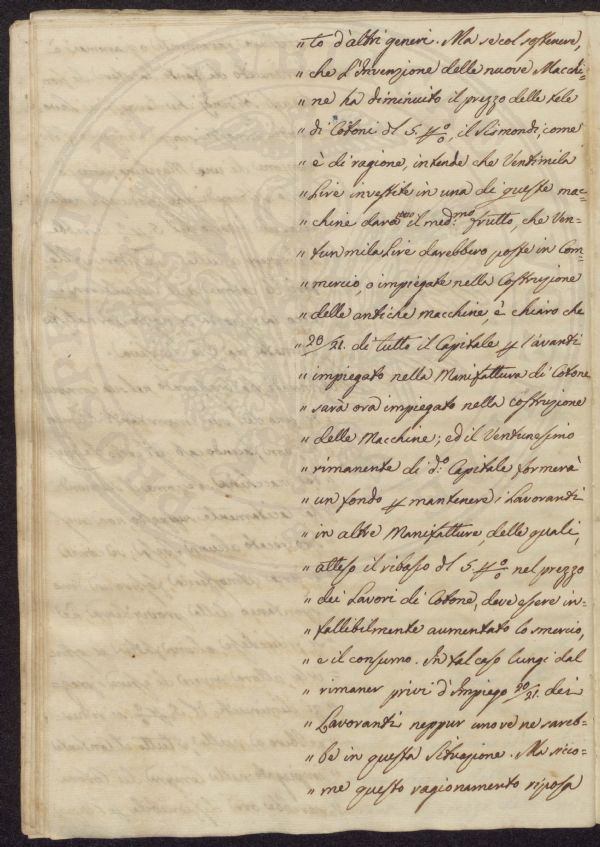 " to d'altri generi. Ma se col sostenere,
" che l'Invenzione delle nuove Macchi=
" ne ha diminuito il prezzo delle tele
" di Cotoni dl 5. p% , il Sismondi, come
" è di ragione, intende che Ventimila
" Lire investite in una di queste mac=
" chine darà il med:mo frutto, che Ven=
" tun mila Lire darebbero poste in Com=
" mercio, o impiegate nella Costruzione
" delle antiche macchine, è chiaro che
" 20/21. di tutto il Capitale p l'avanti
" impiegato nella Manifattura di Cotone
" sarà ora impiegato nella costruzione
" delle Macchine; ed il Ventunesimo
" rimanente di d:o Capitale formerà
" un fondo p mantenere i Lavoranti
" in altre Manifatture, delle quali,
" atteso il ribasso dl 5. p% nel prezzo
" dei Lavori di Cotone, deve essere in=
" fallibilmente aumentato lo smercio,
" e il consumo. In tal caso lungi dal
" rimaner privi d'Impiego 20/21. dei
" Lavoranti neppur uno ve ne sareb=
" be in questa Situazione. Ma sicco=
" me questo ragionamento riposa